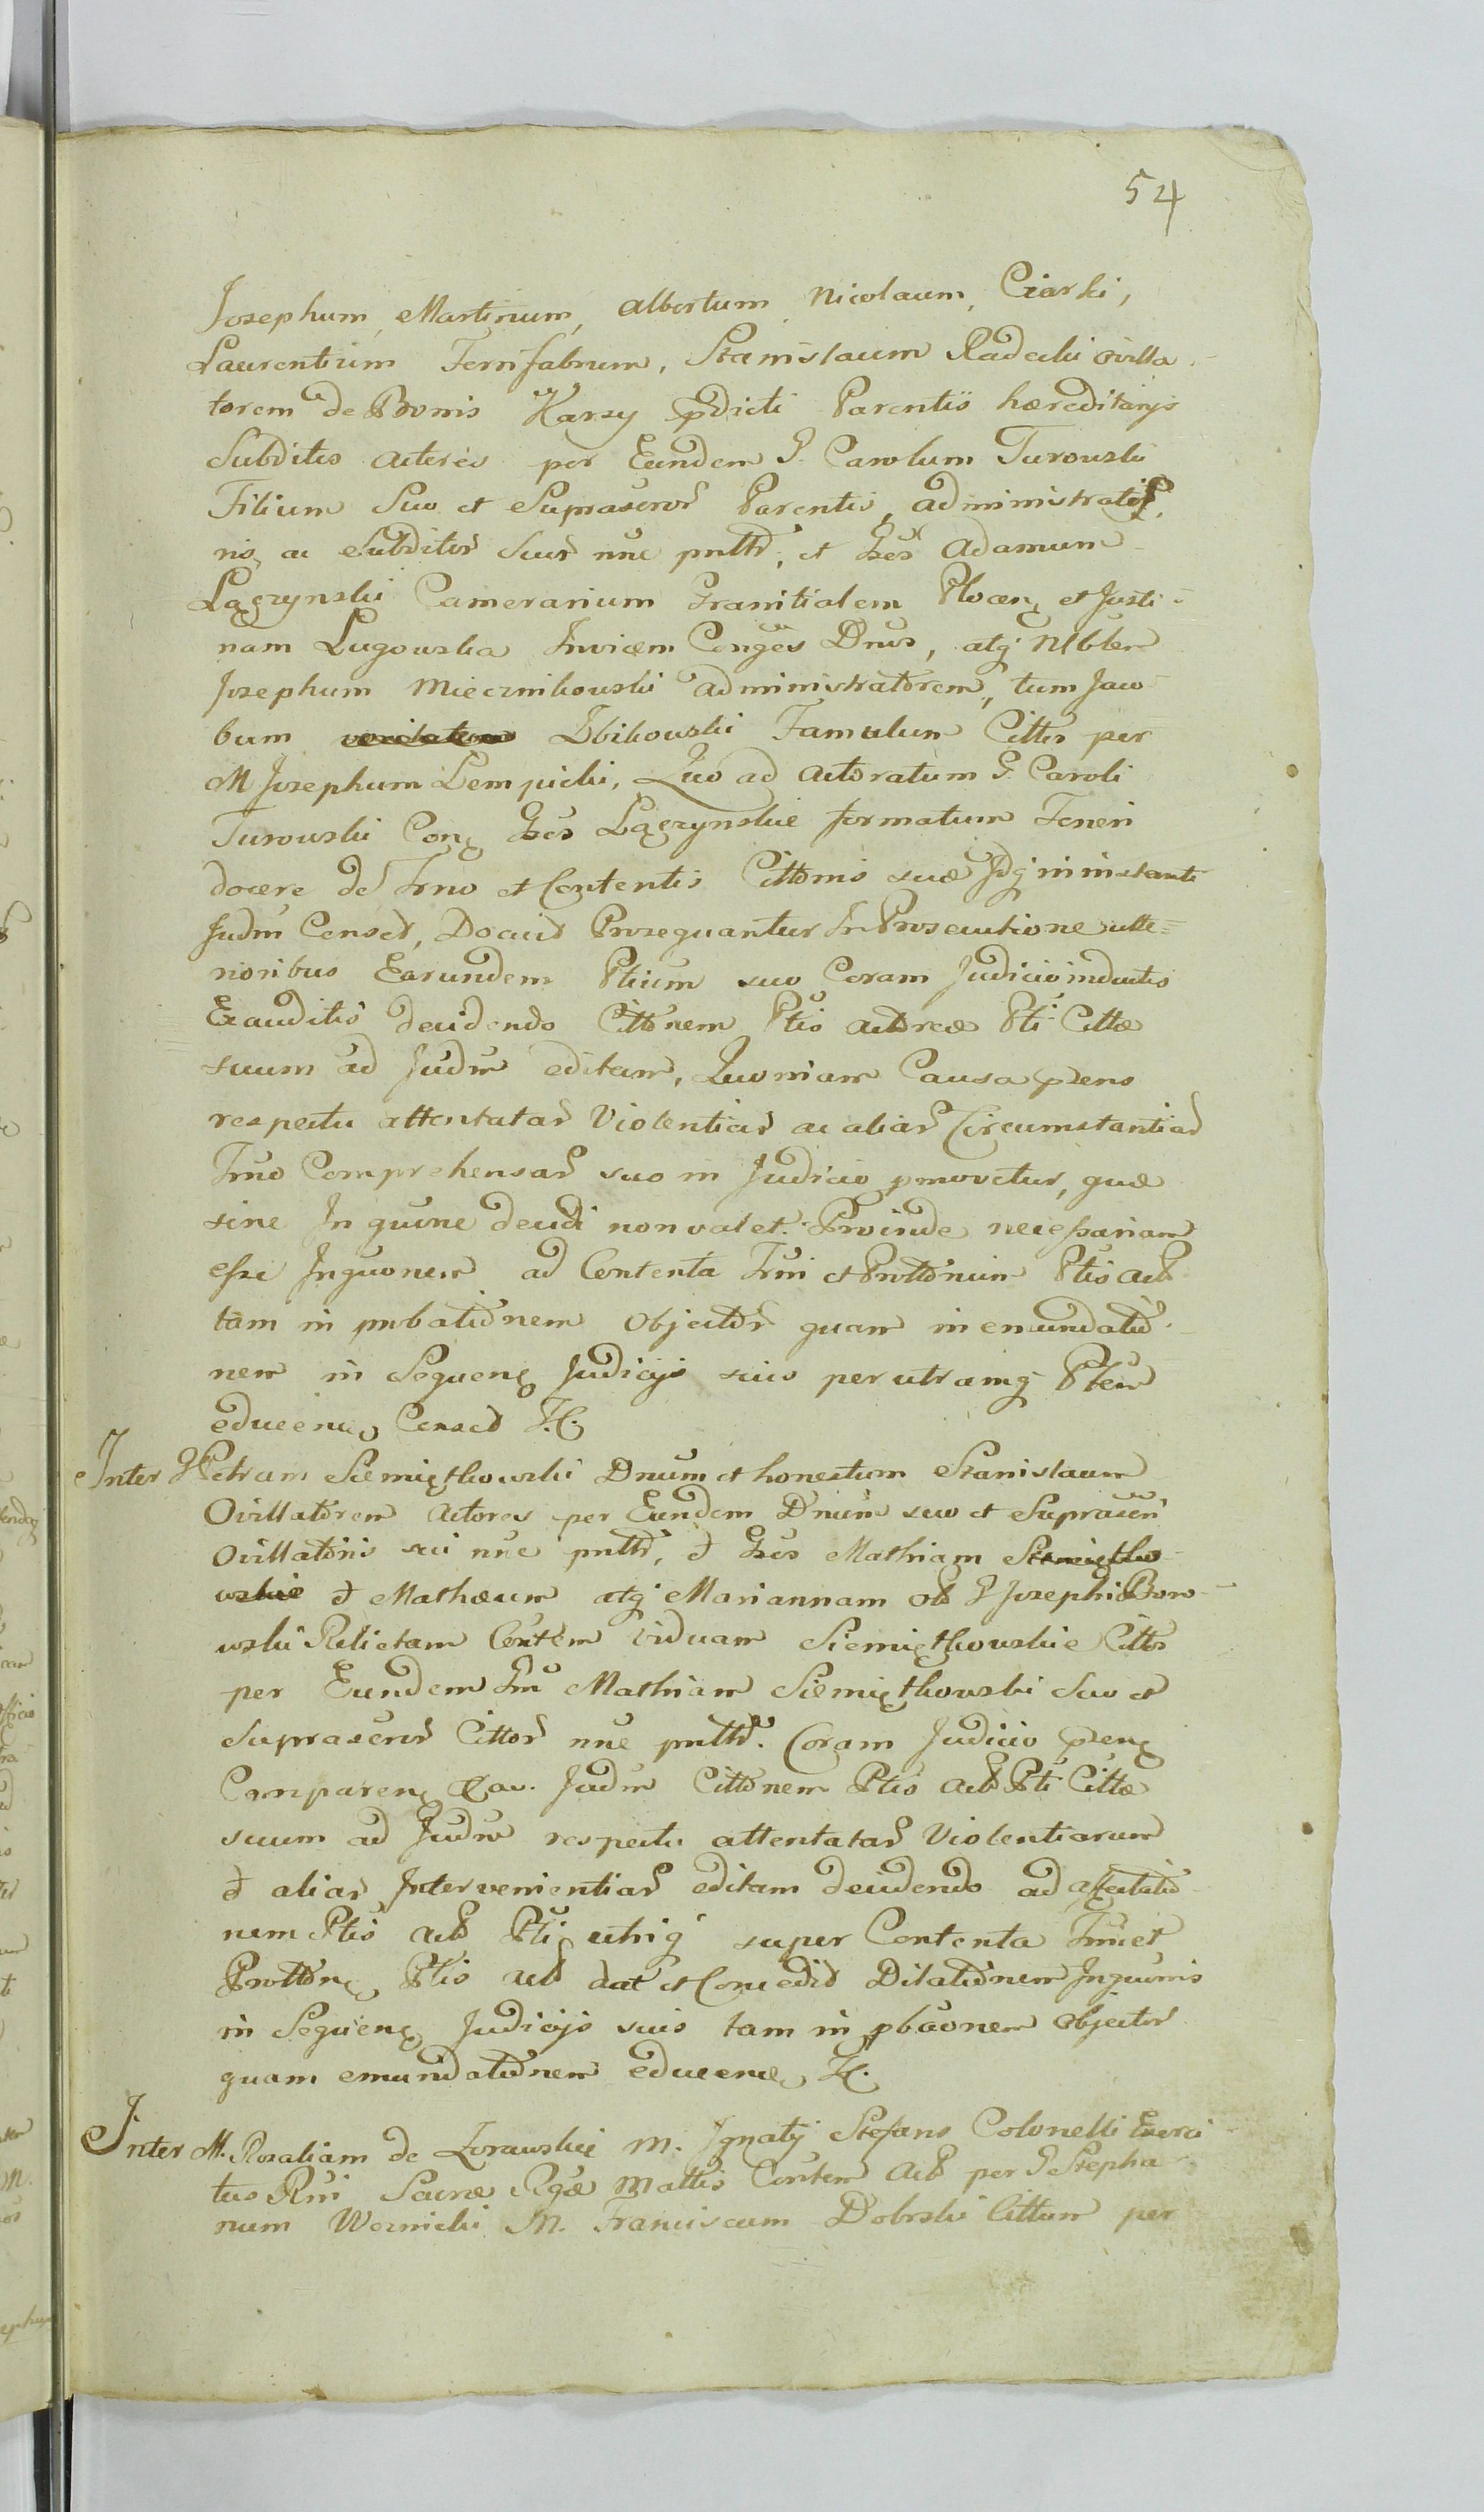 54
Josephum, Martinum, Albertum, Nicolaum, Ciarki,
Laurentium Ferrifabrum, Stanislaum Radecki ovilla-
torem de Bonis Karsy pdicti Parentis hæreditarys
Subditos Actores per Eundem G. Carolum Turowski
Filium Suo et Suprascror Parentis, administrato-
ris ac Subditor Suor nnc pnttr, et Gsos Adamum
Łączynski Camerarium Granitialem Plocen et Justi-
nam Lugowska Invicem Conges Dnos, atq Nlblem
Josephum Miecznikowski administratorem, tum Jaco-
bum Zbikowski Famulum Cittos per
M Josephum Lempicki, Quo ad Actoratum G. Caroli
Turowski Con Gsos Łączynskie formatum Teneri
docere de Trno et Contentis Cittonis suæ Idq in instanti
Judm Censet, Docuit Prosequantur In Prosecutione ulte-
rioribus Earundem Ptium suo Coram Judicio inductis
Exauditis decidendo Cittonem Ptis actoreæ Pti Cittæ
suum ad Judm editam, Quoniam Causa præns
respectu attentatar Violentiar ac aliar Circumstantiar
Trno Comprehensar suo in Judicio pmovetur, quæ
sine Inquone decidi non valet. Proinde necessariam
esse Inquonem ad Contenta Trni et Prottonum Ptis Act
tam in probationem Objector quam in emundatio-
nem in Sequen Judicys suis per utramq Ptem
educen Censet T.C.
Inter G Petrum Siemiątkowski Dnum et honestum Stanislaum
Ovillatorem Actores per Eundem Dnum suo et Suprascri
Ovillatoris sui nnc pnttr, et Gsos Mathiam
et Mathæum atq Mariannam olt G Josephi Boro-
wski Relictam Contem viduam Siemiątkowskie Cittos
per Eundem Gm Mathiam Siemiątkowski Suo et
Suprascror Cittor nnc pnttr. Coram Judicio præn
Comparen Judm Cittonem Ptis Act Pti Cittæ
suum ad Judm respectu attentatar Violentiarum
et aliar Intervenientiar editam decidendo ad affectatio-
nem Ptis Act Pti utriq super Contenta Trni et
Protton Ptis act dat et Concedit Dilationem Inquonis
in Sequen Judicys suis tam in pbaonem Objector
quam emundationem educen T.C.
Inter M. Rosaliam de Zorawskie M. Ignaty Stefans Colonelli Exerci-
tus Rni Sacræ Rgæ Mattis Contem Act per G Stepha-
num Woznicki M. Franciscum Dobrski Cittum per